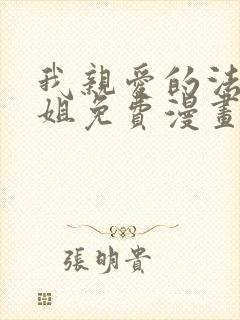 我親愛的法
姐免費漫畫
張明貴